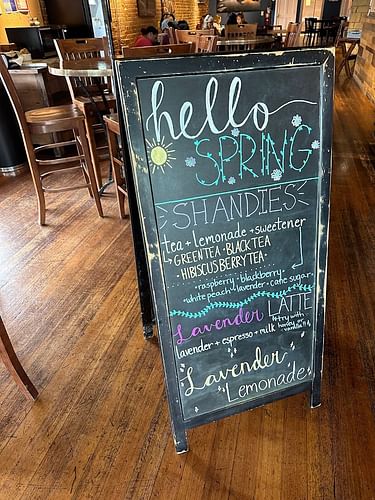 hello
SPRING
SHANDIES
tea + lemonade + sweetener
GREEN TEA • BLACK TEA
• HIBISCUS BERRY TEA •
• raspberry • blackberry •
• white peach • lavender • cane sugar •
Lavender LATTE
lavender + espresso + milk
*try with
honey or
vanilla!!
Lavender
Lemonade